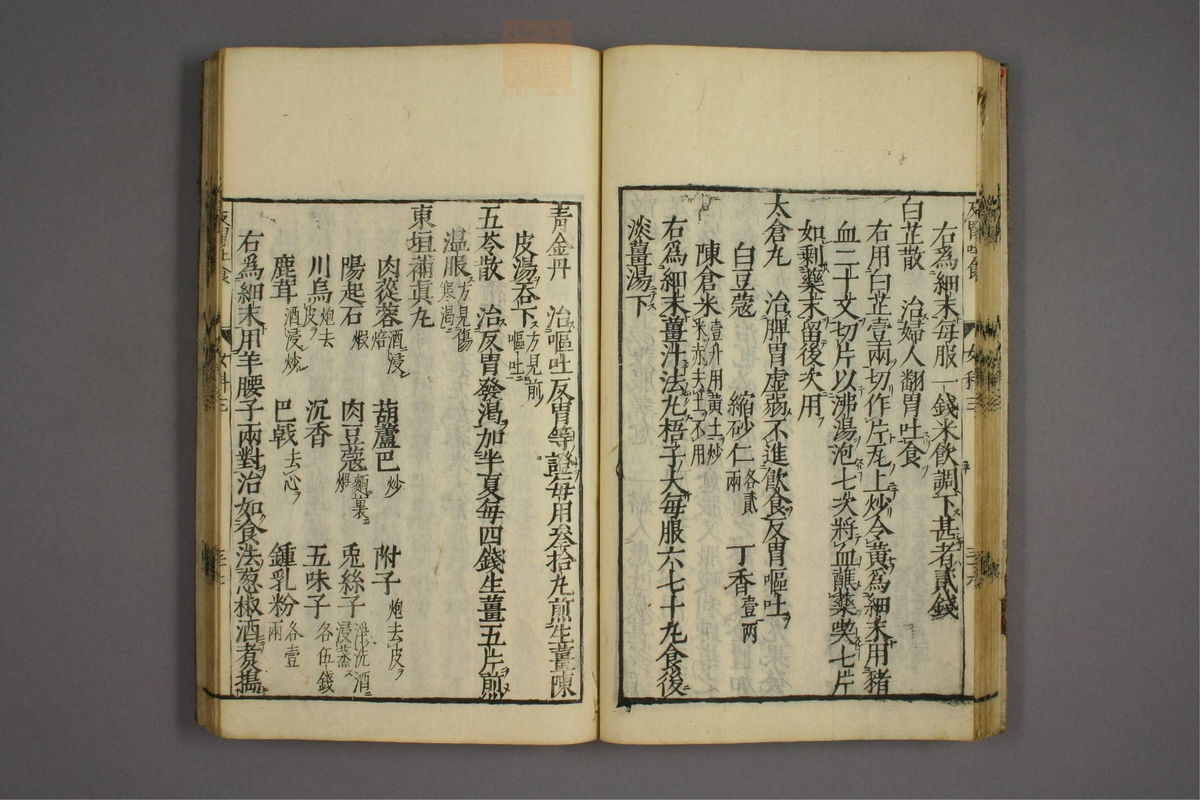 右爲細末每服一錢米飲調下甚者貳錢
白芷散 治婦人翻胃吐食
右用白芷壹兩切作片瓦上炒令黃爲細末用豬
血二十文切片以沸湯泡七次將血蘸藥喫七片
如剩藥末留後次用
太倉丸 治脾胃虛弱不進飲食反胃嘔吐
白豆蔻 縮砂仁各貳兩 丁香壹兩
陳倉米壹升用黃土炒米赤去土不用
右爲細末薑汁法丸梧子大每服六七十丸食後
淡薑湯下
女科三
青金丹 治嘔吐反胃等證每用叁拾丸煎生薑陳
皮湯吞下方見前嘔吐
五苓散 治反胃發渴加半夏每四錢生薑五片煎
温服方見傷寒渴
東垣補真丸
肉蓯蓉酒浸焙 葫蘆巴炒 附子炮去皮
陽起石煆 肉豆蔻麵裹煨 兎絲子淨洗酒浸蒸
川烏炮去皮 沉香 五味子各伍錢
鹿茸酒浸炒 巴戟去心 鍾乳粉各壹兩
右爲細末用羊腰子兩對治如食法葱椒酒煮搗
反胃吐食
女科三
三七